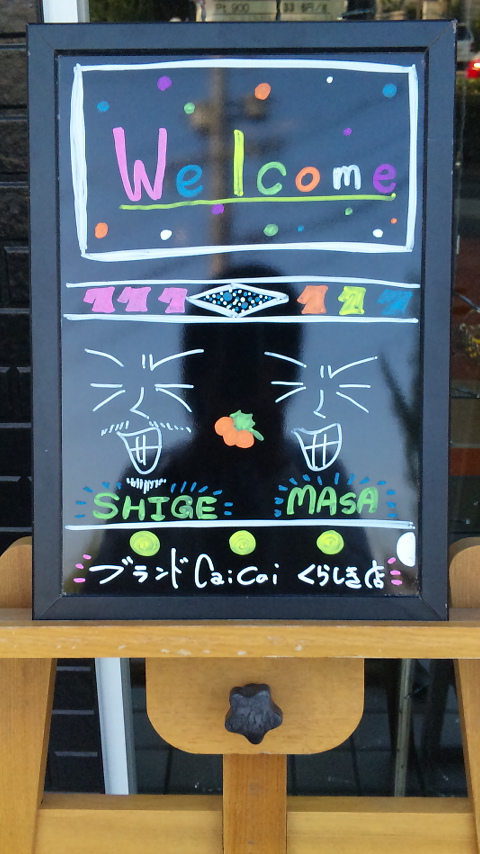 Welcome
777
777
SHIGE
MASA
ブランド CaiCai くらしき店